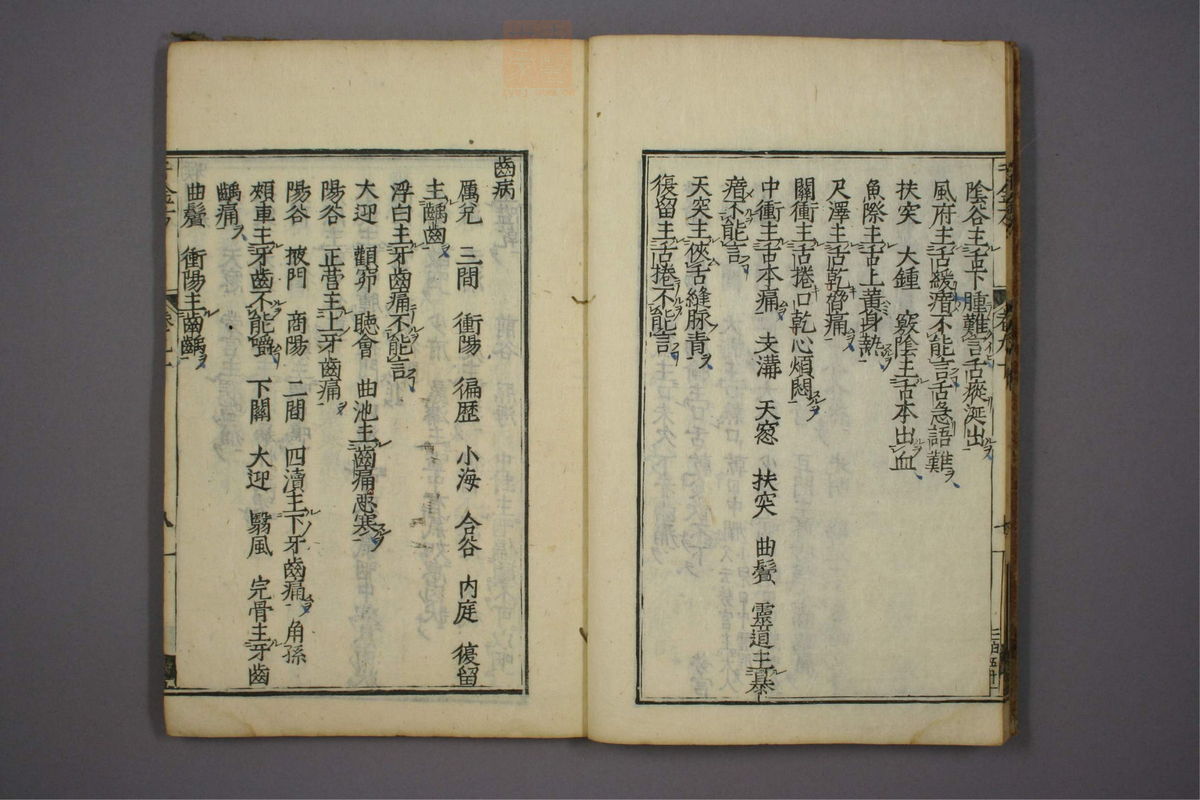 陰谷主舌下腫難言舌瘲涎出
風府主舌緩瘖不能言舌急語難
扶突　大鍾　竅陰主舌本出血
魚際主舌上黃身熱
尺澤主舌乾脅痛
關衝主舌捲口乾心煩悶
中衝主舌本痛　支溝　天窓　扶突　曲鬢　靈道主暴
瘖不能言
天突主俠舌縫脉青
復留主舌捲不能言
二百五十
齒病
厲兌　三間　衝陽　徧歷　小海　合谷　內庭　復留
主齲齒
浮白主牙齒痛不能言
大迎　顴窌　聽會　曲池主齒痛惡寒
陽谷　正營主上牙齒痛
陽谷　掖門　商陽　二間　四瀆主下牙齒痛　角孫
頰車主牙齒不能嚼　下關　大迎　翳風　完骨主牙齒
齲痛
曲鬢　衝陽主齒齲